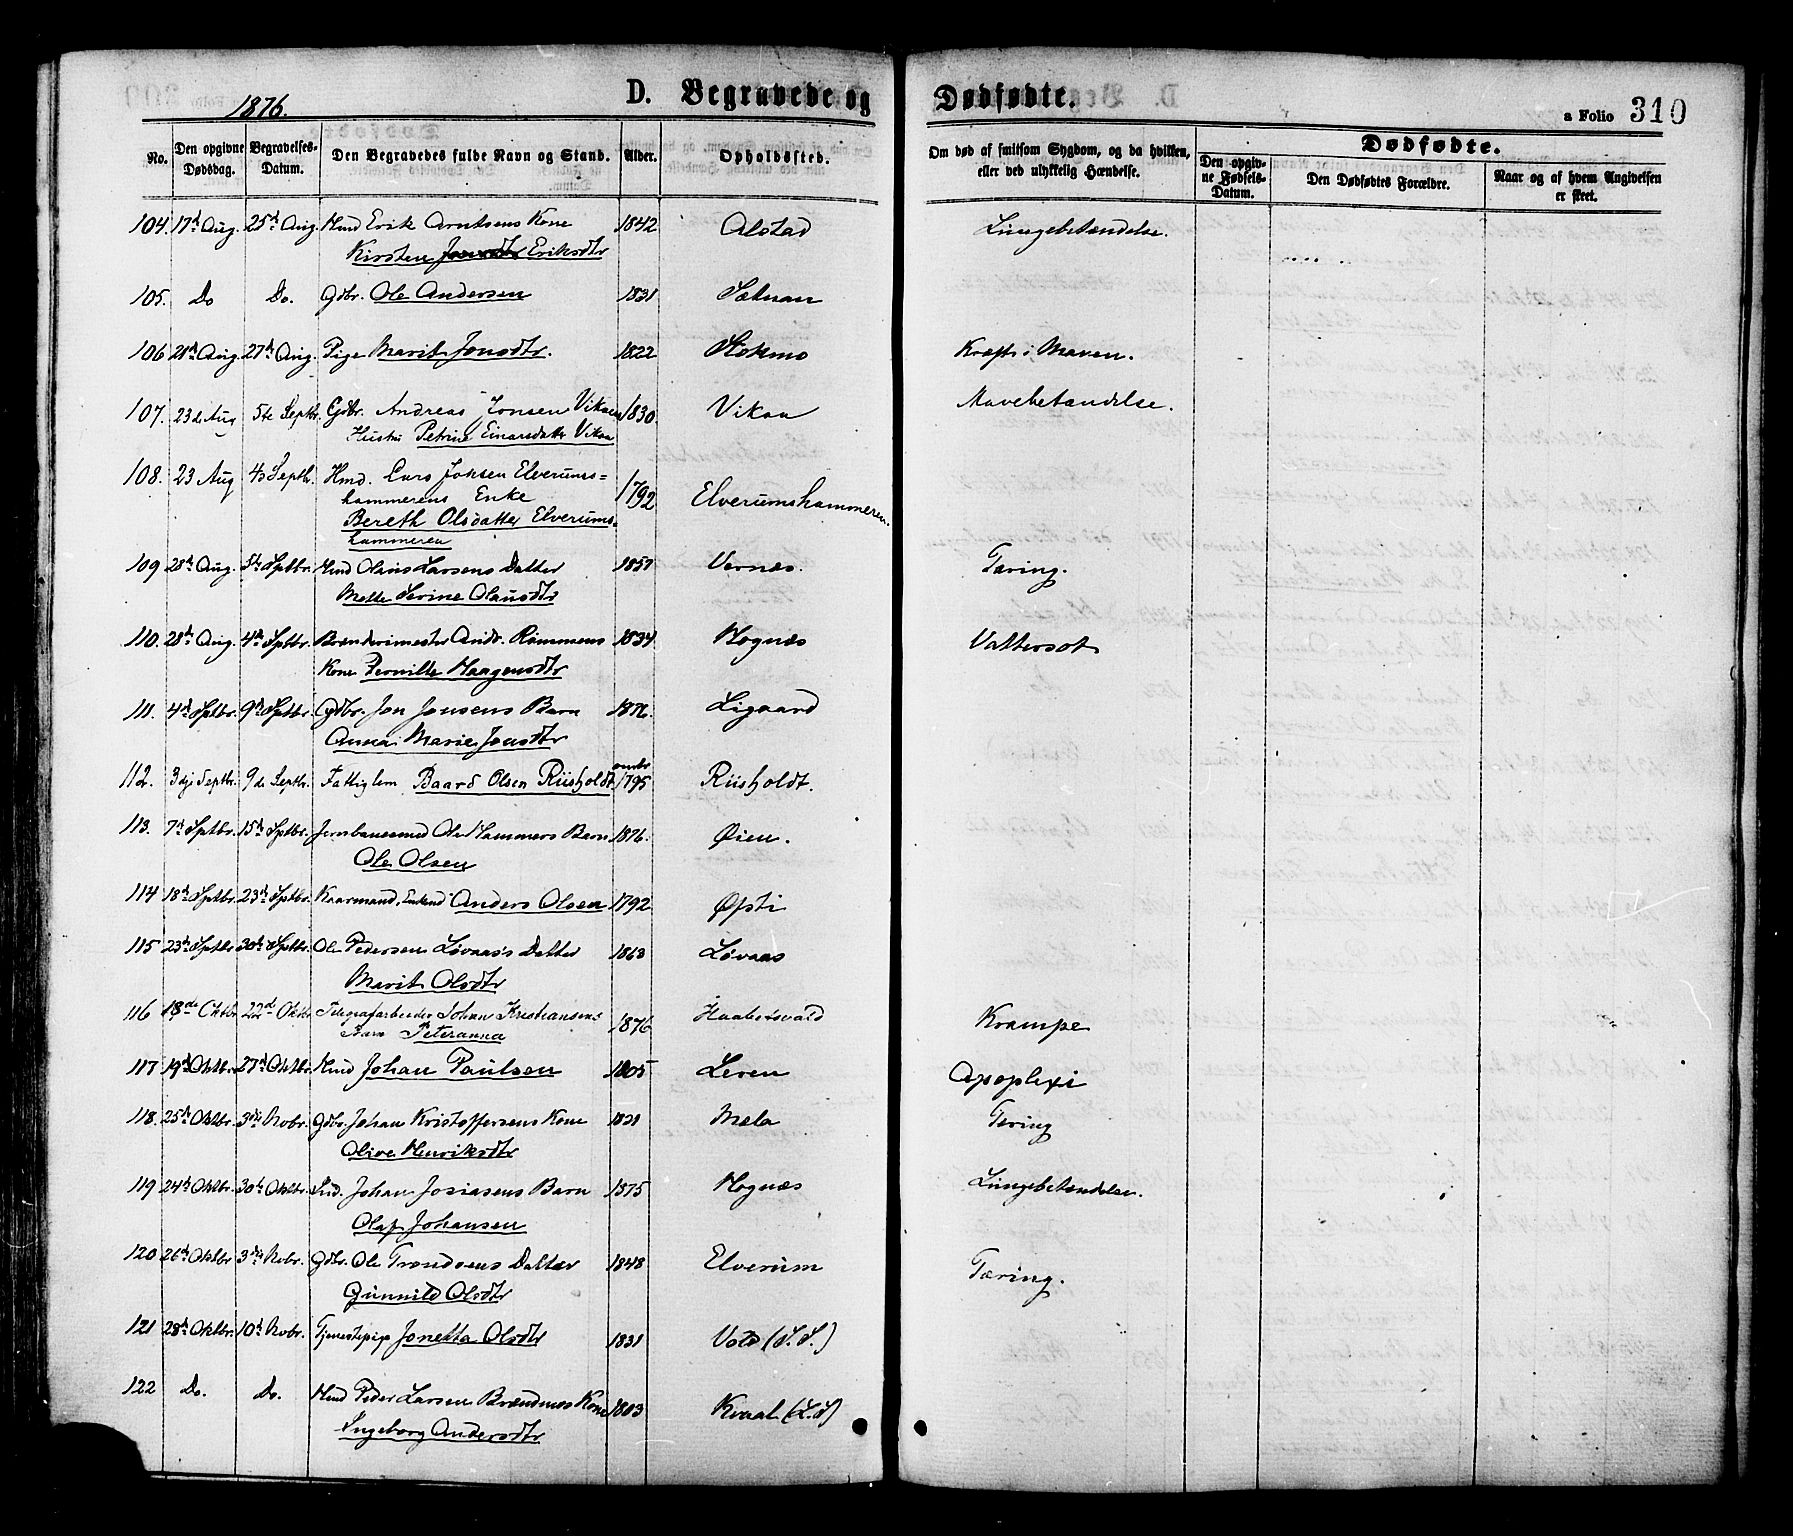 1876.
D. Begravede og Dødfødte.
a Folio 310
No. Den opgivne Dødsdag. Begravelses-Datum. Den Begravedes fulde Navn og Stand. Alder. Opholdssted. Om død af smitsom Sygdom, og da hvilken, eller ved ulykkelig Hændelse. Dødfødte.
Den opgivne Fødsels-Datum. Den Dødfødtes Forældre. Naar og af hvem Angivelsen er skeet.
104. 17de Aug. 25de Aug. Hmd Erik Arntsens Kone 1842 Alstad Lungebetændelse.
Kirsten Eriksdtr
105. Do Do. Gdbr. Ole Andersen 1831 Sætnan
106 21de Aug. 27de Aug. Pige Marit Jonsdtr. 1822 Stokmo Kræft i Maven.
107. 23de Aug 5te Septbr. Gdbr. Andreas Jonsen Vikaas 1830. Vikaa Mavebetændelse.
Hustru Petrine Einarsdatter Vikaa
108. 23 Aug 4de Septbr. Hmd. Lars Jonsen Elverums=
hammerens Enke 1792 Elverumshammeren.
Bereth Olsdatter Elverums-
hammeren
109 28de Aug. 5te Sptbr. Hmd Olaus Larsens Datter 1857 Vernæs. Tæring.
Mette Serine Olausdtr
110. 28de Aug. 4de Sptbr. Brænderimester Andr. Rømmens 1834 Hognæs Vattersot
Kone Pernille Haagensdtr
111. 4de Sptbr. 9de Sptbr. Gdbr. Jon Jonsens Barn 1876. Ligaard
Anna Marie Jonsdtr
112. 3die Septbr. 9de Septbr. Fattiglem Baard Olsen Riisholdt. omtr 1795 Riisholdt.
113. 7de Sptbr. 15de Sptbr. Jernbanemd Ole Hammers Barn 1876. Øien.
Ole Olsen
114 18de Sptbr. 23de Sptbr. Kaarmand, Enkmd Anders Olsen 1792. Øfsti
115 23de Sptbr 30te Sptbr. Ole Pedersen Løvaas's Datter 1868 Løvaas
Marit Olsdtr
116 18de Oktbr 22de Oktbr Telegrafarbeider Johan Kristiansens 1876 Haabetsvald Krampe
Barn Peteranna
117 19de Oktbr. 27de Oktbr. Hmd Johan Paulsen 1805 Leren Apoplexi
118. 25de Oktbr. 3die Novbr. Gdbr. Johan Kristoffersens Kone 1821 Mæla Tæring
Olive Henriksdtr
119 24de Oktbr. 30te Oktbr. Smd. Johan Josiasens Barn 1875 Hognæs Lungebetændelse.
Olaf Johansen
120 26de Oktbr 3die Novbr. Gdbr. Ole Trondsens Datter 1848 Elverum Tæring.
Gunnild Olsdtr
121 28de Oktbr. 10de Novbr. Tjenestepige Jonetta Olsdtr 1831 Vold (S.S.)
122 Do. Do. Hmd Peder Larsen Brændmos Kone 1803 Kvaal (L.S)
Ingeborg Andersdtr